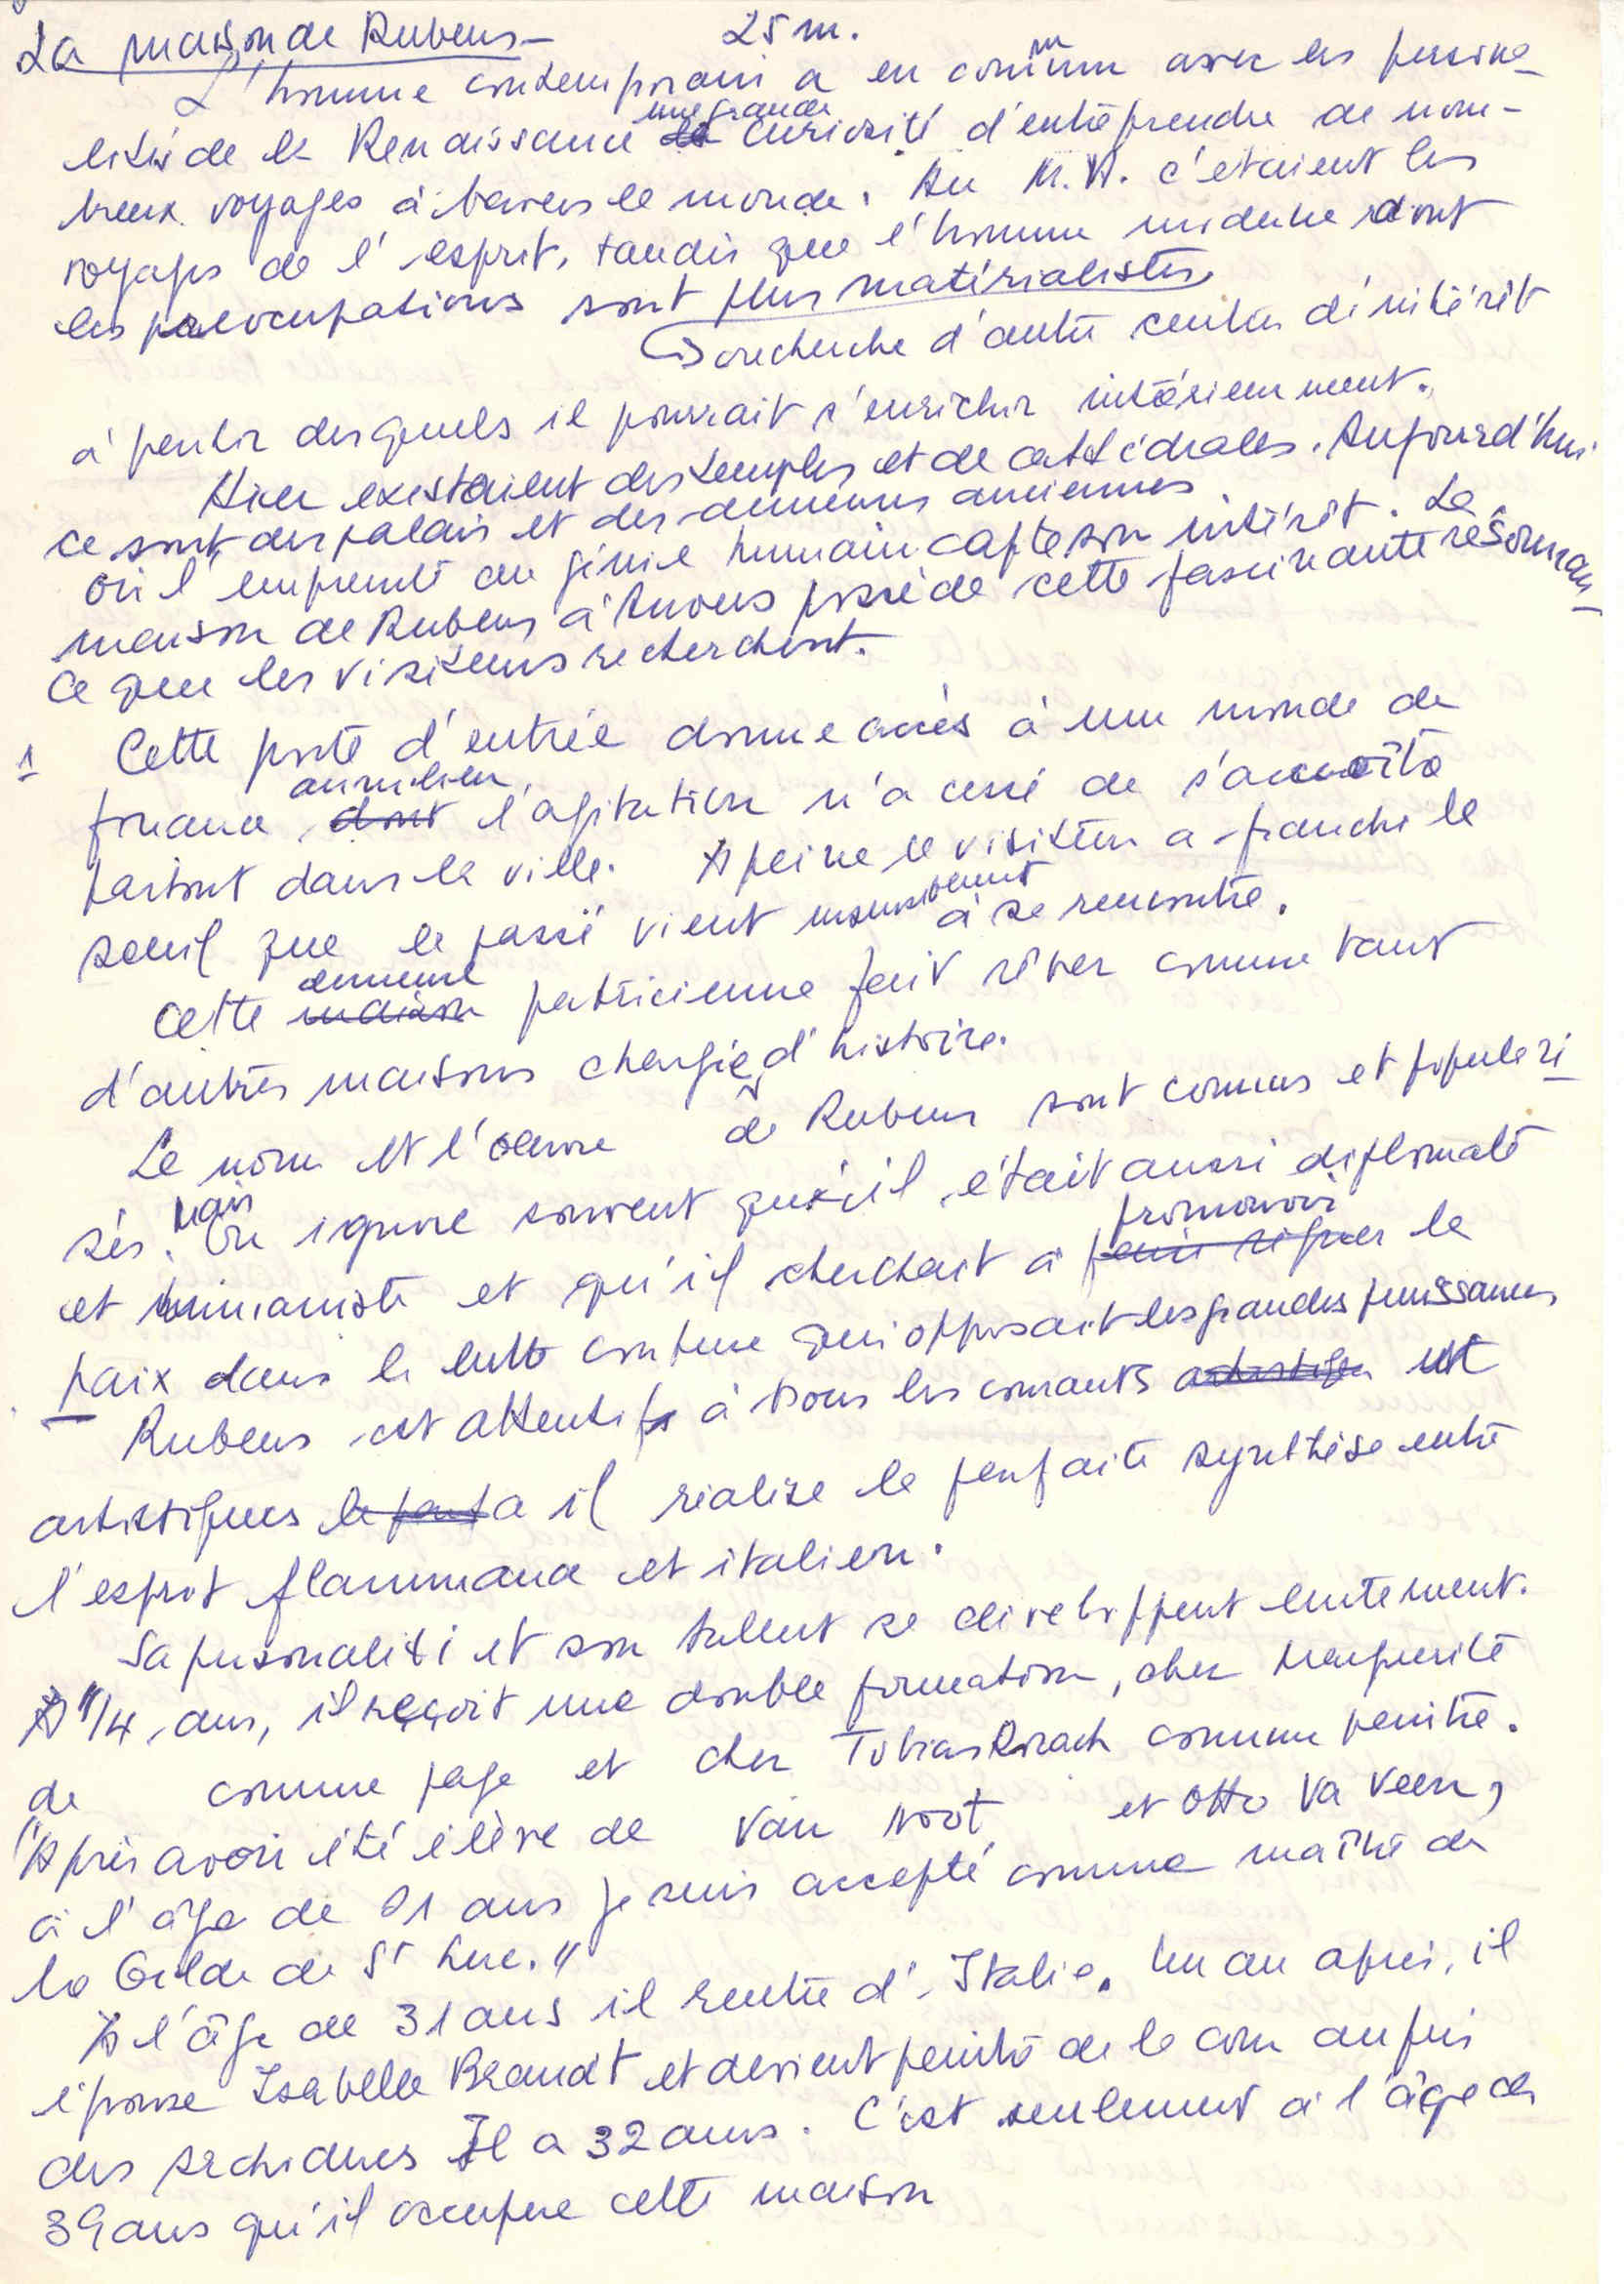 La maison de Rubens - 25 m.
L'homme contemporain a en commun avec les personna-
lités de la Renaissance une grande curiosité d'entreprendre de nom-
breux voyages à travers le monde. Au M.A. c'étaient les
voyages de l'esprit, tandis que l'homme moderne dont
les préoccupations sont plus matérialistes
recherche d'autre centres d'intérêt
à partir desquels il pourrait s'enrichir intérieurement.
Hier existaient des temples et de cathédrales. Aujourd'hui
ce sont des palais et des demeures anciennes
où l'empreinte du génie humain capte son intérêt. La
maison de Rubens à Anvers possède cette fascinante résonnan-
ce que les visiteurs recherchent.
1 Cette porte d'entrée donne accès à un monde de
au milieu
l'agitation n'a cessé de s'accroître
partout dans la ville. A peine le visiteur a franchi le
seuil que le passé vient insensiblement à sa rencontre.
Cette demeure patricienne fait rêver comme tant
d'autres maisons chargées d'histoire.
Le nom et l'oeuvre de Rubens sont connus et populari
sés. Mais on ignore souvent qu'il était aussi diplomate
et humaniste et qu'il cherchait à promouvoir la
paix dans la lutte confuse qui opposait les grandes puissances
Rubens est attentif à tous les courants
artistiques il réalise la parfaite synthèse entre
l'esprit flammand et italien.
Sa personalité et son tallent se developpent lentement.
A 14 ans, il reçoit une double formation, chez Marguerite
de comme page et chez Tobias comme peintre.
"Après avoir été élève de Van Noot et Otto Va Veen,
à l'âge de 21 ans je suis accepté comme maître de
la Gilde de St Luc."
A l'âge de 31 ans il rentre d'Italie. Un an après, il
épouse Isabelle Brandt et devient peintre de la cour auprès
des archiducs Il a 32 ans. C'est seulement à l'âge de
39 ans qu'il occupera cette maison